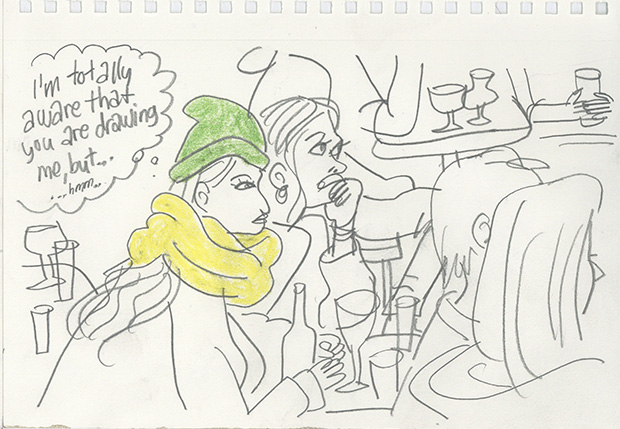 I'm totally
aware that
you are drawing
me, but...
...hmm..